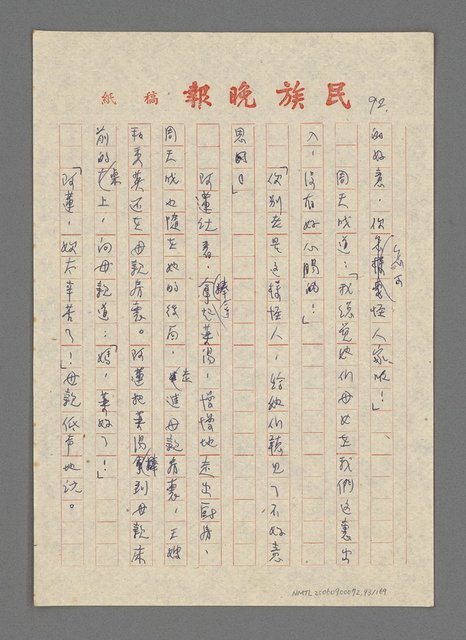 民族晚報 稿紙
92.
的好意,你怎可怪人家呢!」
周天成道:「我總覺她們母女在我們這裏出
入,沒有好心腸的!」
「你別老是這樣怪人,給她們聽見了不好意
思的!」
阿蓮說着,捧着藥湯,慢慢地走出厨房,
周天成也隨在她的後面,走進母親房裏。王嫂
和秀英還在母親房裏。阿蓮把藥湯捧到母親床
前的桌上,向母親道:「媽,藥好了!」
「阿蓮,妳太辛苦了!」母親低声地說。
NMTL 20060900092, 93/169